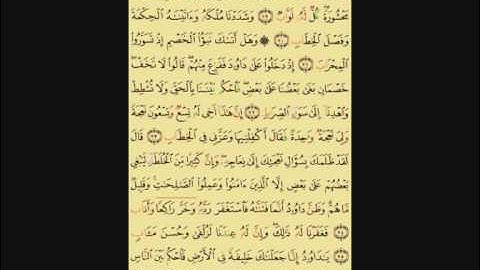 مَحْشُورَةً كُلٌّ لَهُ أَوَّابٌ ﴿١٩﴾ وَشَدَدْنَا مُلْكَهُ وَءَاتَيْنَهُ الْحِكْمَةَ
وَفَصْلَ الْخِطَابِ ﴿٢٠﴾ ۞ وَهَلْ أَتَىٰكَ نَبَؤُا الْخَصْمِ إِذْ تَسَوَّرُوا
الْمِحْرَابَ ﴿٢١﴾ إِذْ دَخَلُوا عَلَىٰ دَاوُدَ فَفَزِعَ مِنْهُمْ قَالُوا لَا تَخَفْ
خَصْمَانِ بَغَىٰ بَعْضُنَا عَلَىٰ بَعْضٍ فَاحْكُم بَيْنَنَا بِالْحَقِّ وَلَا تُشْطِطْ
وَاهْدِنَا إِلَىٰ سَوَاءِ الصِّرَاطِ ﴿٢٢﴾ إِنَّ هَٰذَا أَخِي لَهُ تِسْعٌ وَتِسْعُونَ نَعْجَةً
وَلِيَ نَعْجَةٌ وَاحِدَةٌ فَقَالَ أَكْفِلْنِيهَا وَعَزَّنِي فِي الْخِطَابِ ﴿٢٣﴾ قَالَ
لَقَدْ ظَلَمَكَ بِسُؤَالِ نَعْجَتِكَ إِلَىٰ نِعَاجِهِ وَإِنَّ كَثِيرًا مِنَ الْخُلَطَاءِ لَيَبْغِي
بَعْضُهُمْ عَلَىٰ بَعْضٍ إِلَّا الَّذِينَ ءَامَنُوا وَعَمِلُوا الصَّٰلِحَٰتِ وَقَلِيلٌ
مَّا هُمْ وَظَنَّ دَاوُدُ أَنَّمَا فَتَنَّٰهُ فَاسْتَغْفَرَ رَبَّهُ وَخَرَّ رَاكِعًا وَأَنَابَ
﴿٢٤﴾ فَغَفَرْنَا لَهُ ذَٰلِكَ وَإِنَّ لَهُ عِندَنَا لَزُلْفَىٰ وَحُسْنَ مَـَٔابٍ
﴿٢٥﴾ يَٰدَاوُدُ إِنَّا جَعَلْنَٰكَ خَلِيفَةً فِي الْأَرْضِ فَاحْكُم بَيْنَ النَّاسِ